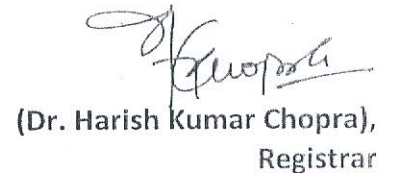 Chopra
(Dr. Harish Kumar Chopra),
Registrar